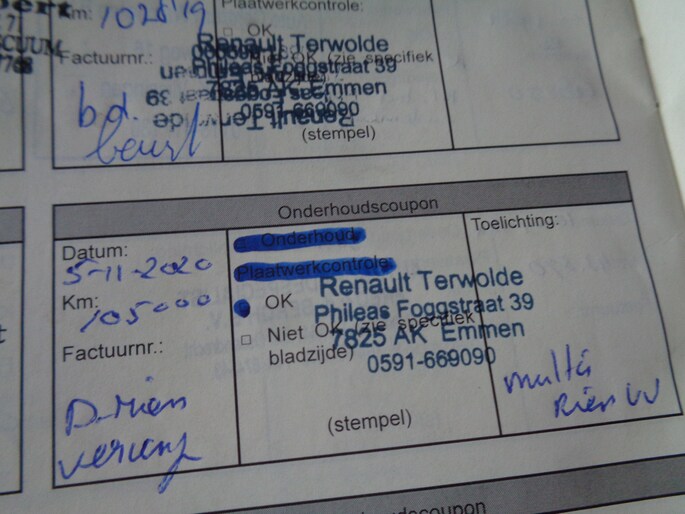 Km: 102819
Plaatwerkcontrole:
□ OK
Renault Terwolde
Factuurnr.:
Niet OK (zie specifiek
Phileas Foggstraat 39
7825 AK Emmen
0591-669090
bd.
beurt
(stempel)
Onderhoudscoupon
Datum:
5-11-2020
Km:
105000
Factuurnr.:
D-rien
□ Onderhoud
Plaatwerkcontrole:
OK
□ Niet OK (zie specifiek
bladzijde)
Renault Terwolde
Phileas Foggstraat 39
7825 AK Emmen
0591-669090
(stempel)
Toelichting:
multi
Riem
houdscoupon